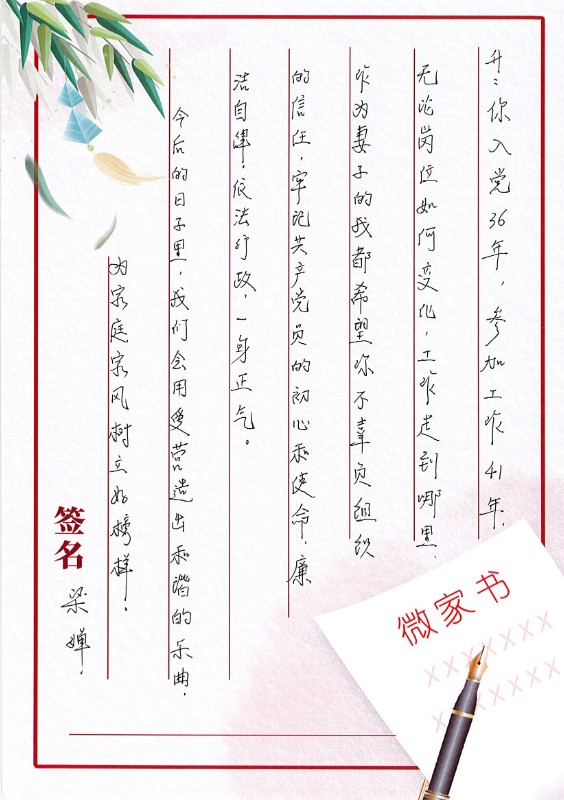 升：你入党36年，参加工作41年，
无论岗位如何变化，工作走到哪里，
作为妻子的我都希望你不辜负组织
的信任，牢记共产党员的初心和使命，廉
洁自律，依法行政，一身正气。
今后的日子里，我们会用爱营造出和谐的乐曲，
为家庭家风树立好榜样。
签名 梁婵
微家书
XXXXXXX
XXXXXXX